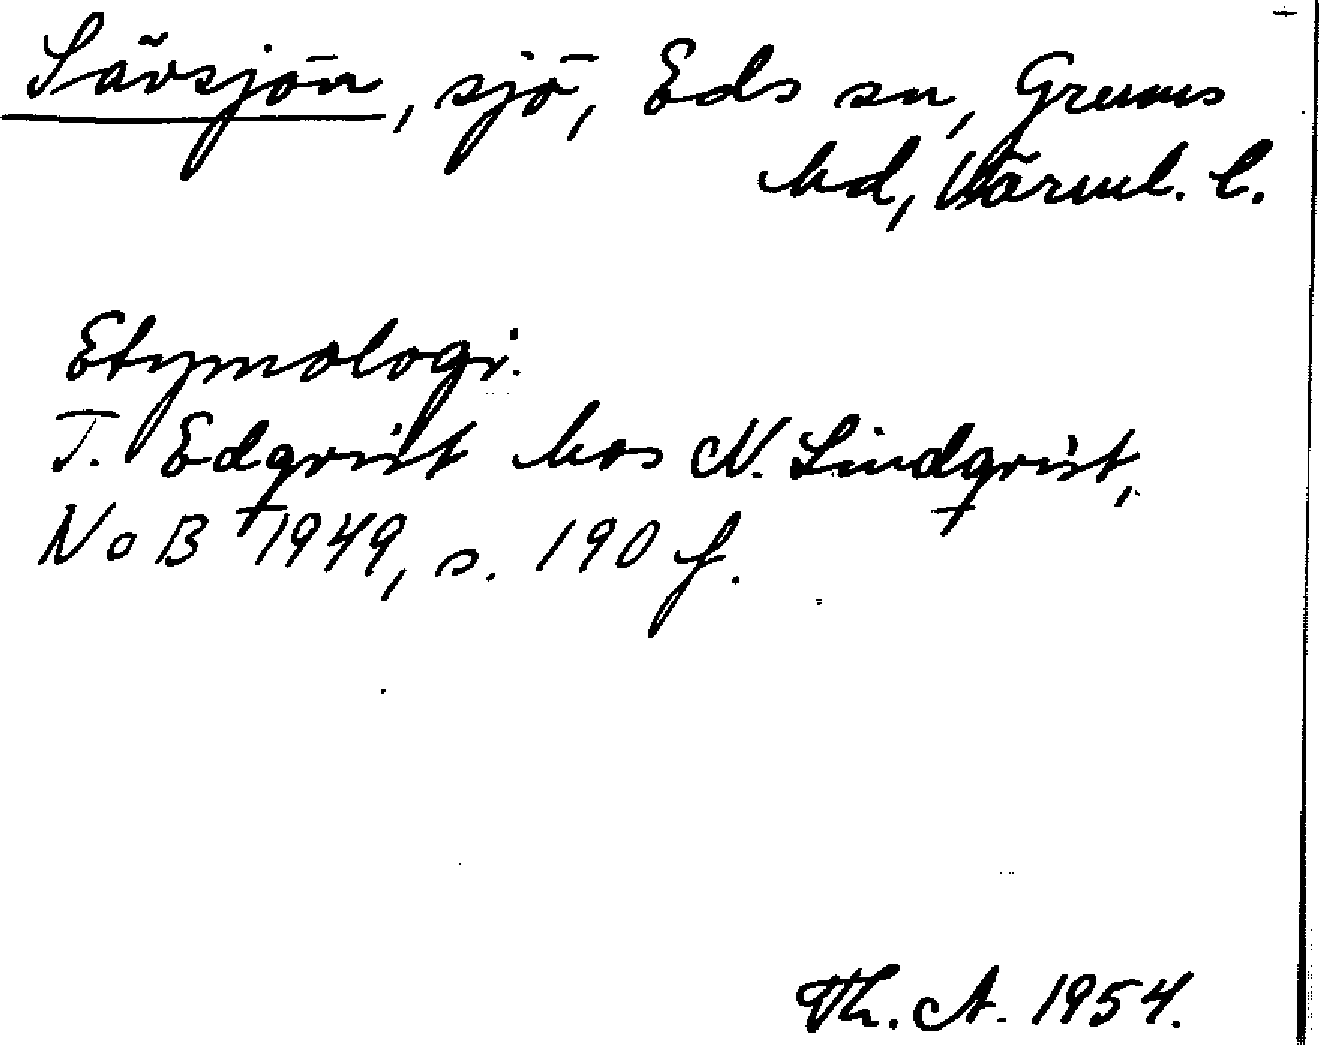 Sävsjön, sjö, Eds sn, Grums
hd, Värml. l.
Etymologi.
T. Edqvist hos N. Lindqvist,
NoB 1949, s. 190 f.
Th. A. 1954.